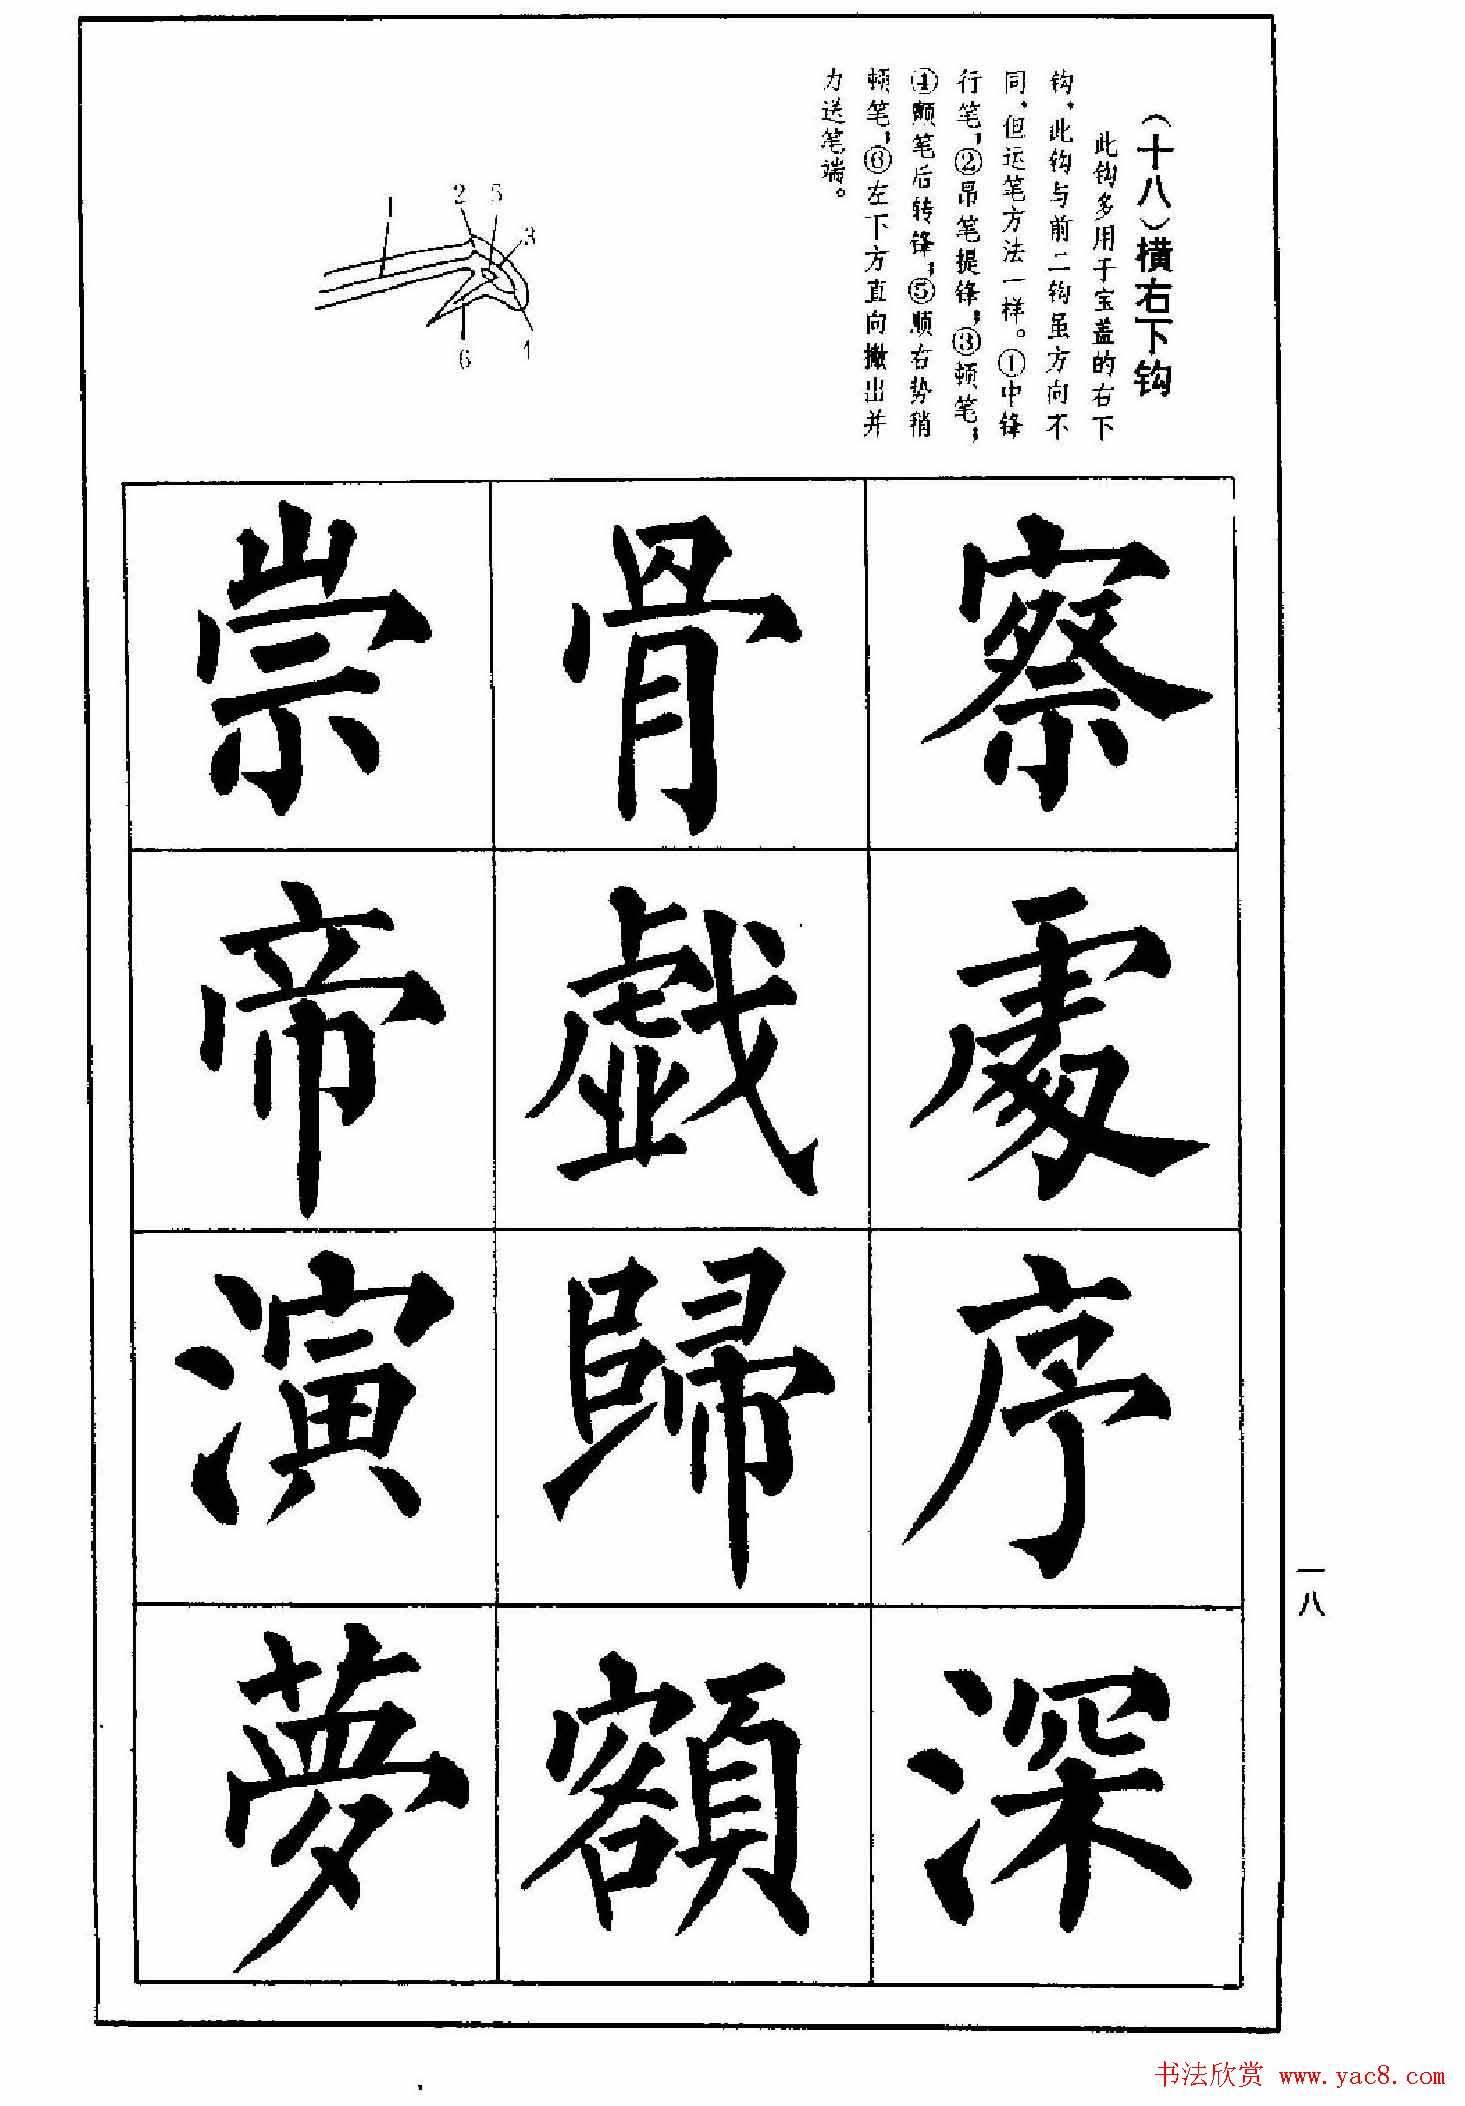 （十八）横右下钩
此钩多用于宝盖的右下
钩，此钩与前二钩虽方向不
同，但运笔方法一样。①中锋
行笔；②昂笔提锋；③顿笔；
④颤笔后转锋；⑤顺右势稍
顿笔；⑥左下方直向撇出并
力送笔端。
1
2
5
3
4
6
察處序深
骨戯歸額
崇帝演夢
一八
书法欣赏 www.yac8.com